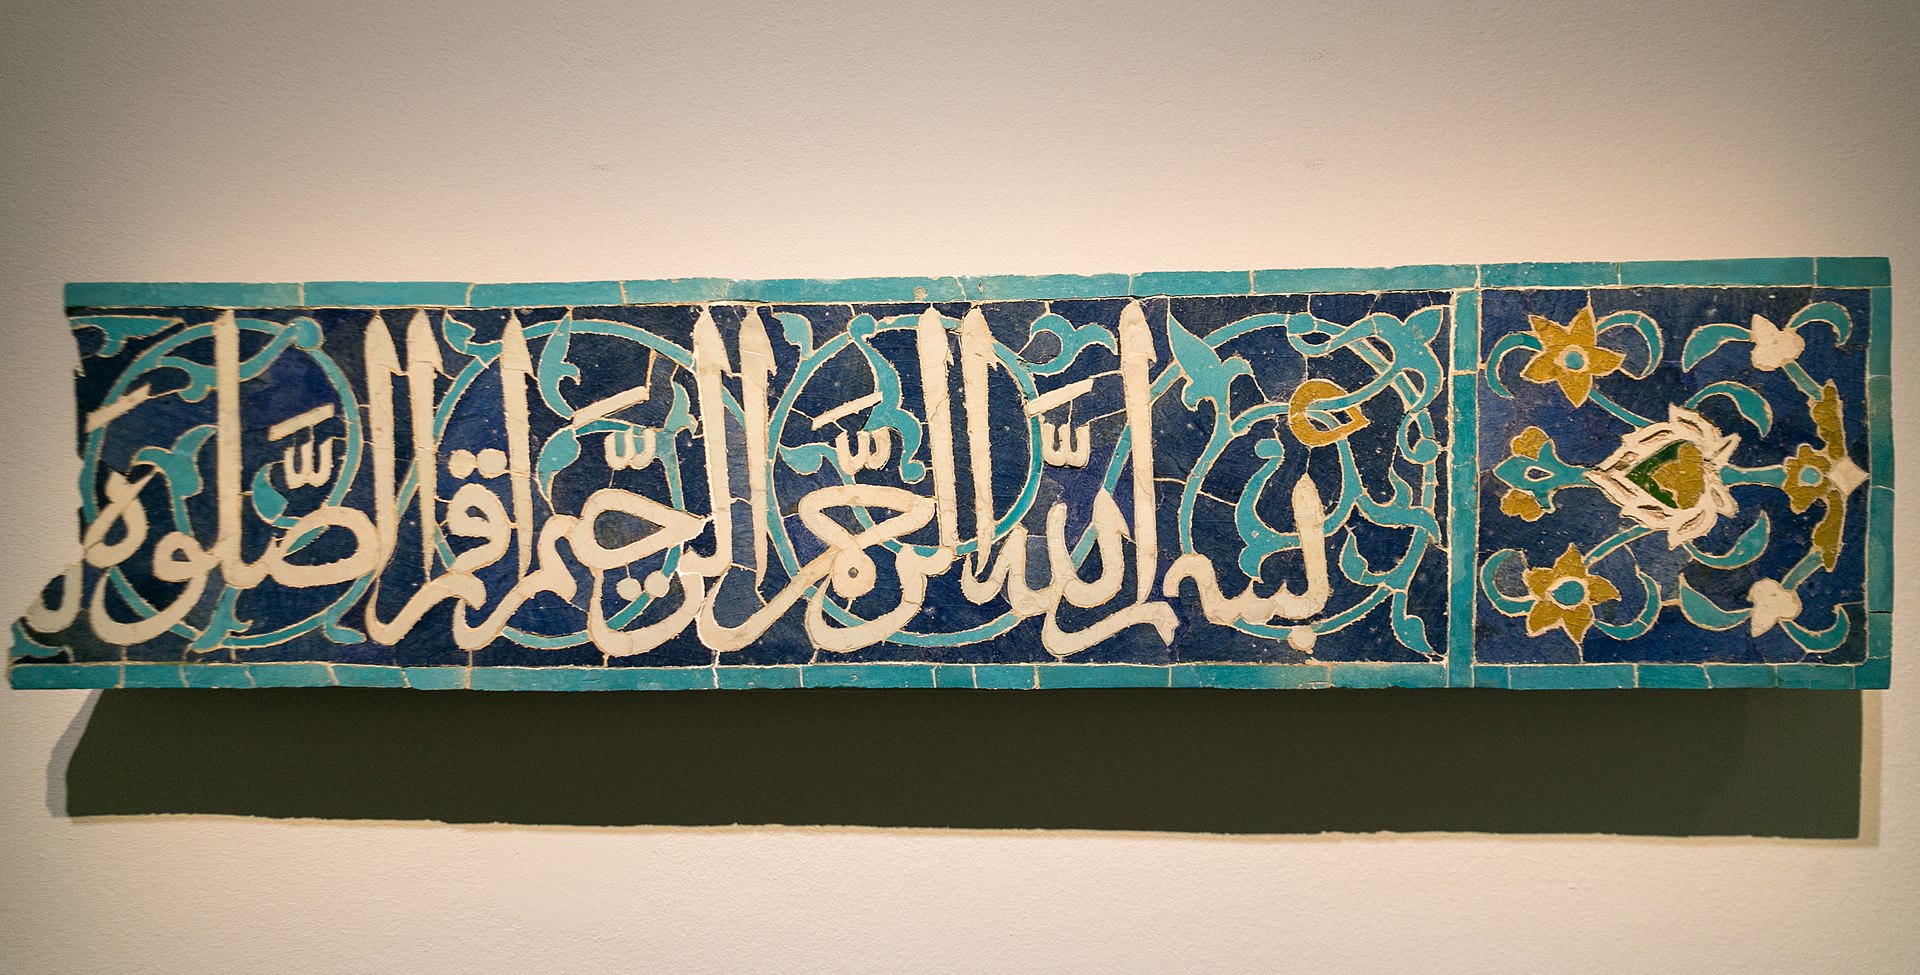 بسم الله الرَّحمن الرَّحیم اقم الصَّلوة